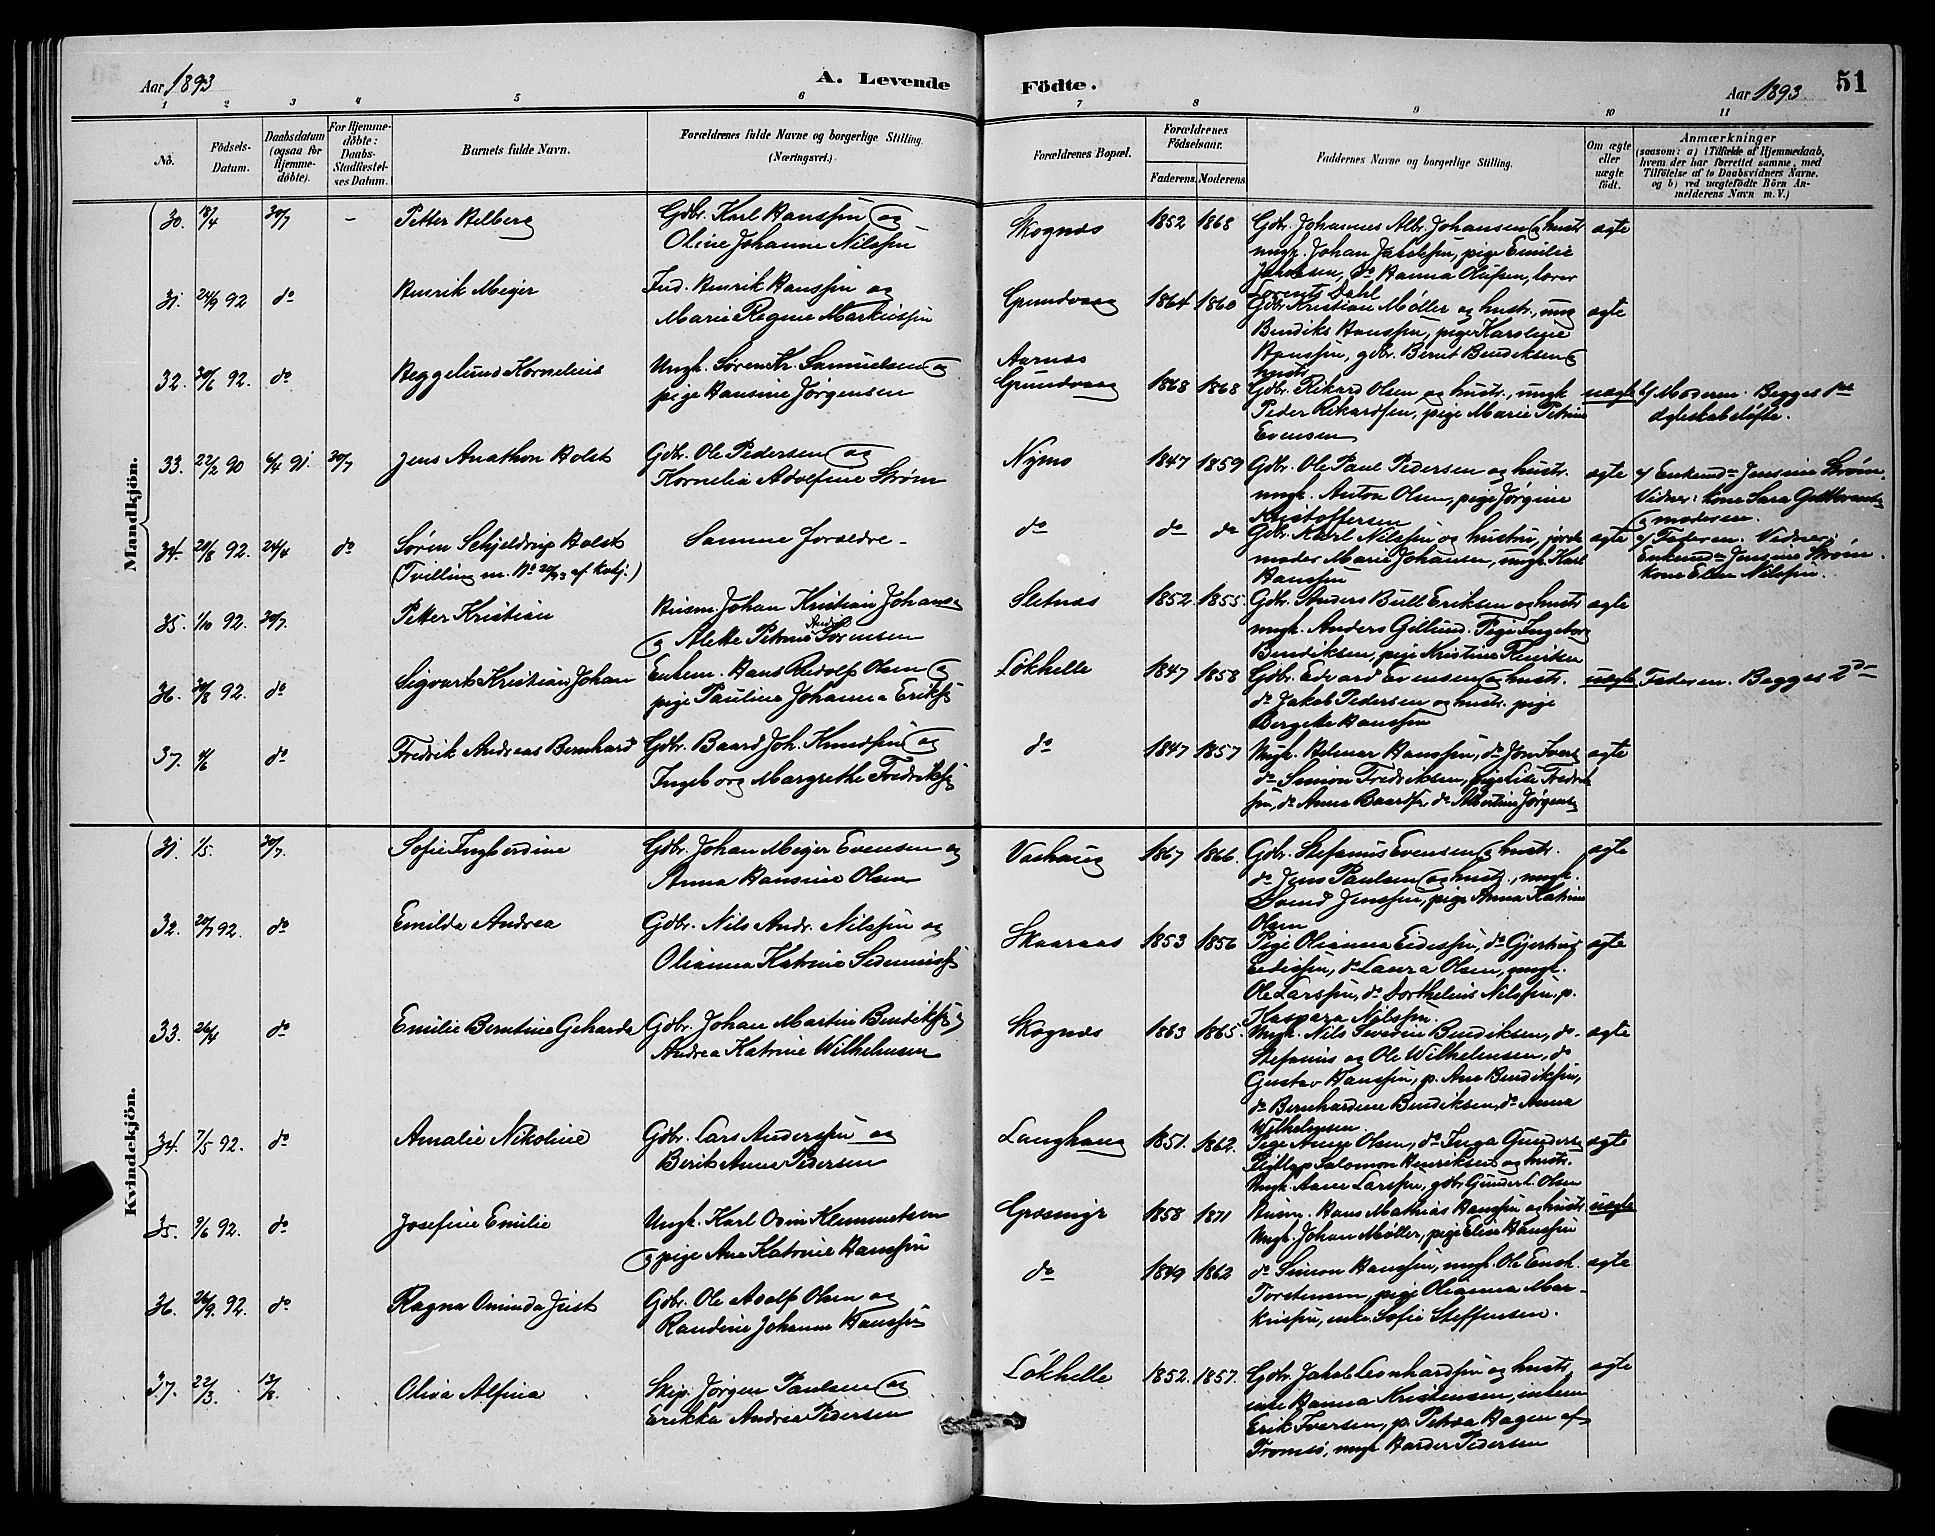 Aar 1893
A. Levende
Födte.
Aar 1893
51
1 2 3 4 5 6 7 8 9 10 11
No.
Födsels-Datum.
Daabsdatum (ogsaa for Hjemme-döbte).
For Hjemme-döbte: Daabs-Stadfæstel-ses Datum.
Barnets fulde Navn.
Forældrenes fulde Navne og borgerlige Stilling. (Næringsvei.)
Forældrenes Bopæl.
Forældrenes Födselsaar.
Faderens. Moderens.
Faddernes Navne og borgerlige Stilling.
Om ægte eller uægte født.
Anmærkninger
(saasom: a) i Tilfælde af Hjemmedaab, hvem der har forrettet samme, med Tilföielse af to Daabsvidners Navne. og b) ved uægtefödte Börn An-melderens Navn m.V.)
Mandkjön.
30. 18/4 30/7 - Petter Helberg
Gdbr. Karl Hanssen og
Oline Johanne Nilssen
Skognæs 1852 1868
Gdbr. Johannes Alb. Johansen og hustr
ungk. Johan Jakobsen, pige Emilie
Jakobsen, do Hanna Olufsen, lærer
Lorents Dahl
ægte
31. 24/9 92 do Henrik Meyer
Ind. Henrik Hanssen og
Marie Regine Markussen
Grundvaag 1864 1860
Gdbr. Kristian Møller og hustr., ung
Bendiks Hanssen, pige Karoline
Hanssen, gdbr. Bernt Bendiksen og
hustr
ægte
32. 30/6 92. do Heggelund Kornelius
Ungk. Søren Kr. Samuelsen og
pige Hansine Jørgensen
Aarnæs
Grundvaag 1868 1868
Gdbr. Rikard Olsen og hustr., ungk
Peder Rikardsen, pige Marie Petrine
Evensen
uægte
b/ Moderen. Begges 1ste
ægteskabsløfte.
33. 22/2 90 6/4 91. 30/7 Jens Anathon Holst
Gdbr. Ole Pedersen og
Kornelia Adolfine Strøm
Nymo 1847 1859
Gdbr. Ole Paul Pedersen og hustr.
ungk. Anton Olsen, pige Jørgine
Kristoffersen
ægte
a/ Enkemd. Jensine Strøm.
Vidner: kone Sara
og moderen.
34. 20/8 92. 24/4 do Søren Schjeldrup Holst
(Tvilling m. No 20/93 af kvkj.)
Samme forældre.
do do do
Gdbr. Karl Nilssen og hustru, jorde
moder Marie Johansen, ungk. Karl
Hanssen
ægte
a/ Faderen. Vidner:
Enkemd. Jensine Strøm.
kone Ellen Nilssen.
35. 1/10 92. 30/7. Petter Kristian
Husm. Johan Kristian Johans.
og Alette Petrine Andr. Sørensen
Sletnæs 1852. 1855.
Gdbr. Anders Bull Eriksen og hustr
ungk. Anders Gillund. Pige Ingeborg
Bendiksen, pige Kristine Henriksen
ægte
36. 30/8 92. do Sigvart Kristian Johan
Enkem. Hans Redolf Olsen og
pige Pauline Johanna Eriks.
Løkhelle 1847 1858
Gdbr. Edvard Evensen og hustr.
do Jakob Pedersen og hustr. pige
Bergette Hanssen
uægte
Faderen. Begges 2det
37. 4/6 do Fredrik Andreas Bernhard
Gdbr. Baard Joh. Knudsen og
Ingeborg Margrethe Fredriks.
do 1847 1857
Ungk. Helmer Hanssen, do Jon Ivers
do Simon Fredriksen, pige Lise Fredrik
sen, do Anna Baards., do Albertine Jørgens.
ægte
Kvindekjön.
31. 1/5. 30/7. Sofie Ingberdine
Gdbr. Johan Meyer Evensen og
Anna Hansine Olsen
Vashaug 1867 1866.
Gdbr. Stefanus Evensen og hustr.
do Jens Paulsen og hustr., ungk.
Svend Jenssen, pige Anna Katrine
Olsen
ægte
32. 20/7 92. do Emilda Andrea
Gdbr. Nils Andr. Nilssen og
Olianna Katrine
Skaaraas 1853 1856
Pige Olianna Eidissen, do Gjertrud
Eidissen, do Laura Olsen, ungk.
Ole Larssen, do Dorthelius Nilssen, p.
Kaspara Nilssen.
ægte
33. 26/4 do Emilie Berntine Geharda
Gdbr. Johan Martin Bendiks. og
Andrea Katrine Wilhelmsen
Skognæs 1863 1865.
Ungk. Nils Severin Bendiksen, do.
Stefanus og Ole Wilhelmsen, do
Gustav Hanssen, p. Ane Bendiksen,
do Bernhardine Bendiksen, do Anna
Wilhelmsen.
ægte
34. 7/5 92. do Amalie Nikoline
Gdbr. Lars Anderssen og
Berit Anna Pedersen
Langhaug 1851. 1862.
Pige Anne Olsen, do Inga Gunders.
Salomon Henriksen og hustr.
Ungk. Aane Larssen, gdbr. Olsen
ægte
35. 9/6 92. do Josefine Emilie
Ungk. Karl Ovin Klemmetsen
og pige Ane Katrine Hanssen
Græsmyr 1858 1871
Husm. Hans Mathias Hanssen og hustr
Ungk. Johan Møller, pige Elise Hanssen
uægte
36. 26/9. 92. do Ragna Ominda Just
Gdbr. Ole Adolf Olsen og
Randine Johanne Hanssen
do 1849 1862
do Simon Hanssen, ungk. Ole Enok
Torstensen, pige Olianna Mar-
kussen, enke Sofie Steffensen.
ægte
37. 22/3. 13/8. Olina Alfina
Skip. Jørgen Paulsen og
Erikka Andrea Pedersen
Løkhelle 1852. 1857.
Gdbr. Jakob Leonhardsen og hustr
enke Hanna Kristensen, enkem
Erik Iversen, p. Petra Hagen af
Tromsø, ungk. Harder Pedersen
ægte